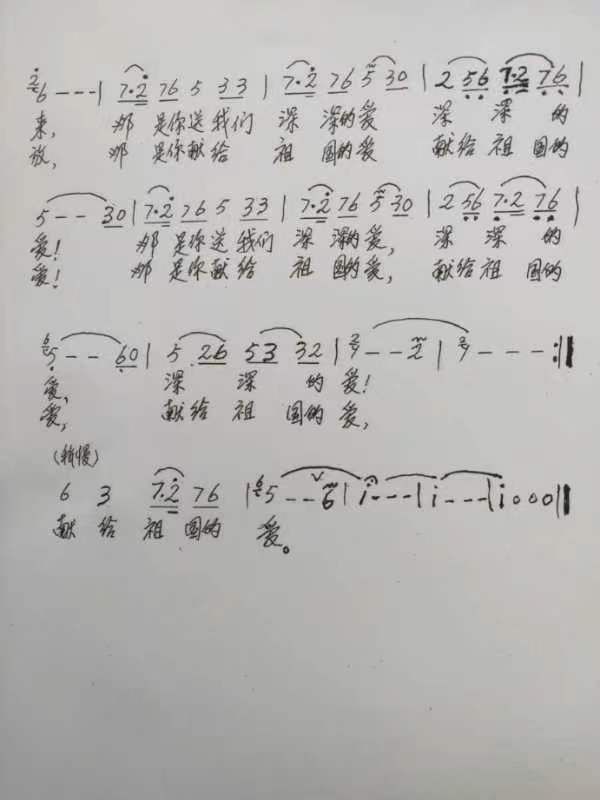 2 6 - - - | 7·2 76 5 33 | 7·2 76 5 30 | 2 56 7·2 76 |
来, 那 是你送我们 深 深的爱 深 深 的
放, 那 是你献给 祖 国的爱 献给 祖 国的
5 - - 30 | 7·2 76 5 33 | 7·2 76 5 30 | 2 56 7·2 76 |
爱! 那 是你送我们 深 深的爱, 深 深 的
爱! 那 是你献给 祖 国的爱, 献给祖 国的
6 5 - - 60 | 5 26 53 32 | - - 2 | - - - :||
爱, 深 深 的 爱!
爱, 献给 祖 国的 爱,
(稍慢)
6 3 7·2 76 | 6 5 - - 6 | i - - - | i - - - | i 0 0 0 ||
献 给 祖 国的 爱。